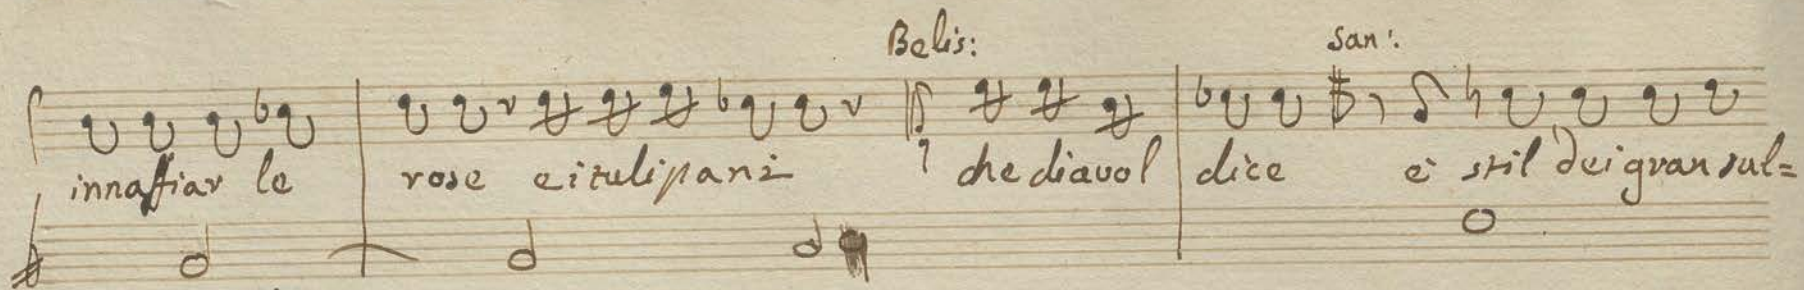 Belis: San:
innaffiar le rose e i tulipani che diavol dice è stil dei gran sul=